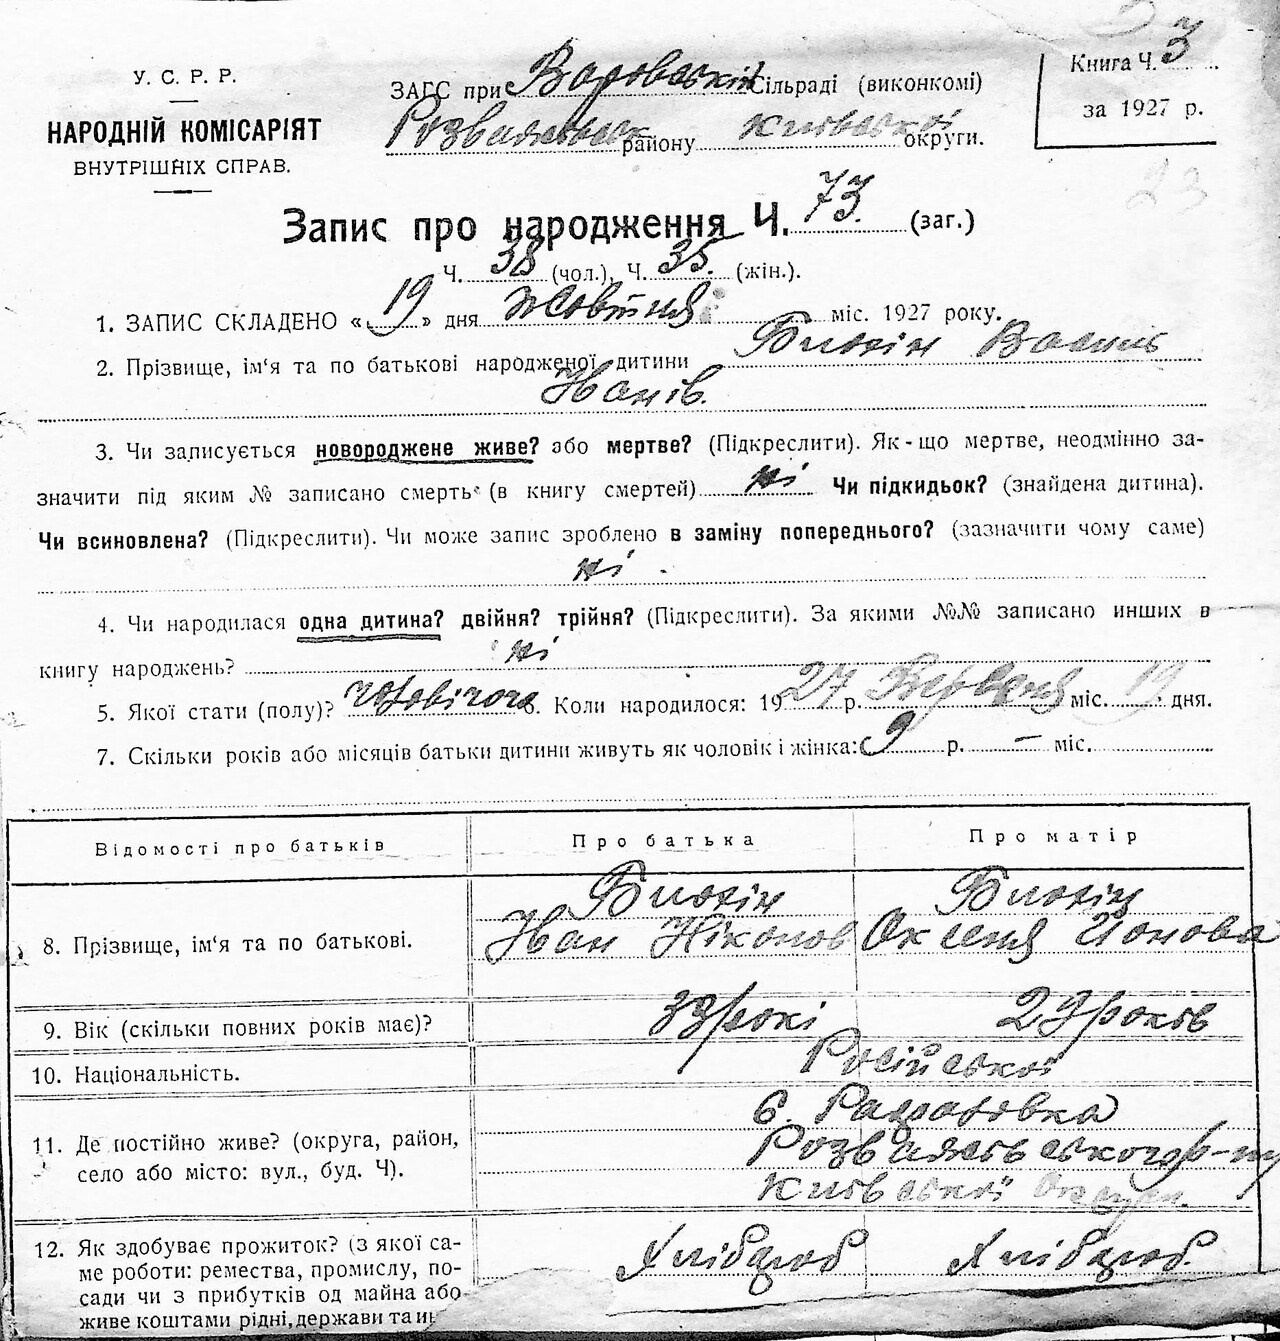 У. С. Р. Р.
НАРОДНІЙ КОМІСАРІЯТ
ВНУТРІШНІХ СПРАВ.
ЗАГС при Варовській Сільраді (виконкомі)
району Київської округи.
Книга Ч. 3
за 1927 р.
23
Запис про народження Ч. 73. (заг.)
Ч. 38 (чол.), Ч. 35. (жін.).
1. ЗАПИС СКЛАДЕНО « 19 » дня Жовтня міс. 1927 року.
2. Прізвище, ім‘я та по батькові народженої дитини Василь
Іванів.
3. Чи записується новороджене живе? або мертве? (Підкреслити). Як-що мертве, неодмінно за-
значити під яким № записано смерть (в книгу смертей) ні Чи підкидьок? (знайдена дитина).
Чи всиновлена? (Підкреслити). Чи може запис зроблено в заміну попереднього? (зазначити чому саме)
ні .
4. Чи народилася одна дитина? двійня? трійня? (Підкреслити). За якими №№ записано инших в
книгу народжень? ні
5. Якої стати (полу)? 6. Коли народилося: 19 27 р. Вересня міс. 19 дня.
7. Скільки років або місяців батьки дитини живуть як чоловік і жінка: 9 р. — міс.
Відомості про батьків Про батька Про матір
8. Прізвище, ім‘я та по батькові.
Іван Ніконов Оксеня Йонова
9. Вік (скільки повних років має)? 33 рокі 29 років
10. Національність. Російської
11. Де постійно живе? (округа, район,
село або місто: вул., буд. Ч).
Київської Округи.
12. Як здобуває прожиток? (з якої са-
ме роботи: ремества, промислу, по-
сади чи з прибутків од майна або
живе коштами рідні, держави та
Хлібороб Хлібороб.